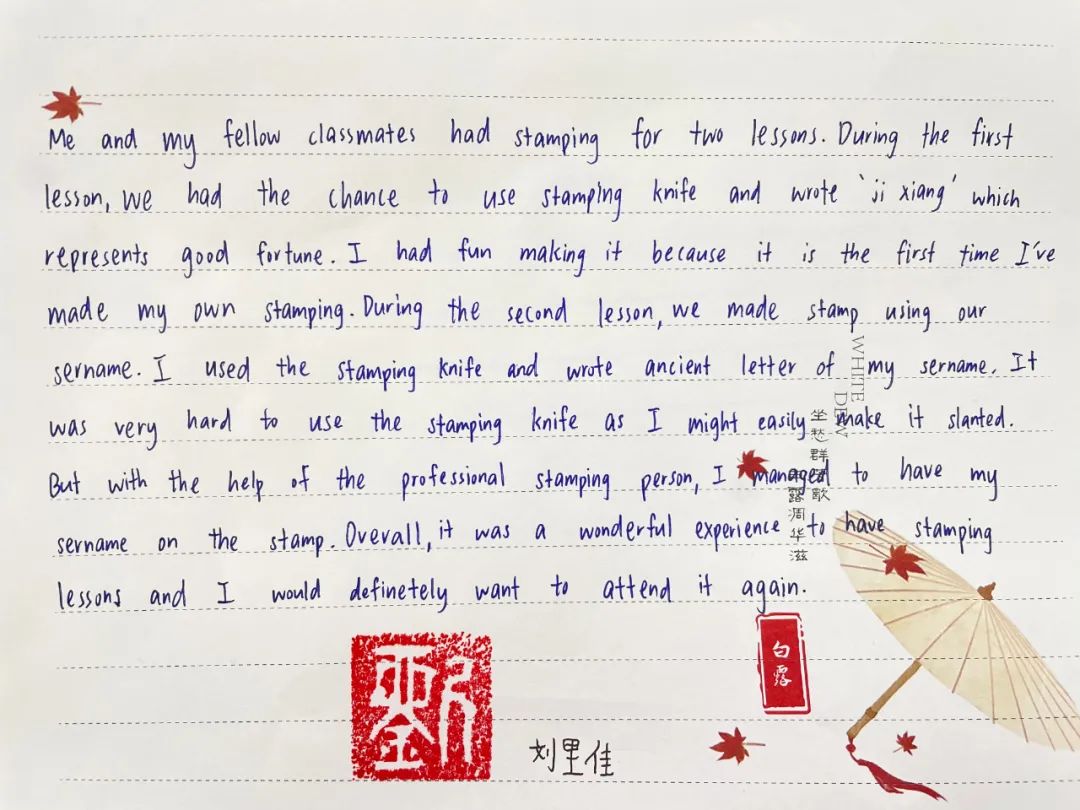 Me and my fellow classmates had stamping for two lessons. During the first
lesson, we had the chance to use stamping knife and wrote 'ji xiang' which
represents good fortune. I had fun making it because it is the first time I've
made my own stamping. During the second lesson, we made stamp using our
sername. I used the stamping knife and wrote ancient letter of my sername. It
was very hard to use the stamping knife as I might easily make it slanted.
But with the help of the professional stamping person, I managed to have my
sername on the stamp. Overall, it was a wonderful experience to have stamping
lessons and I would definetely want to attend it again.
WHITE
DEW
坐愁群芳歇
白露凋华滋
白露
劉
刘里佳